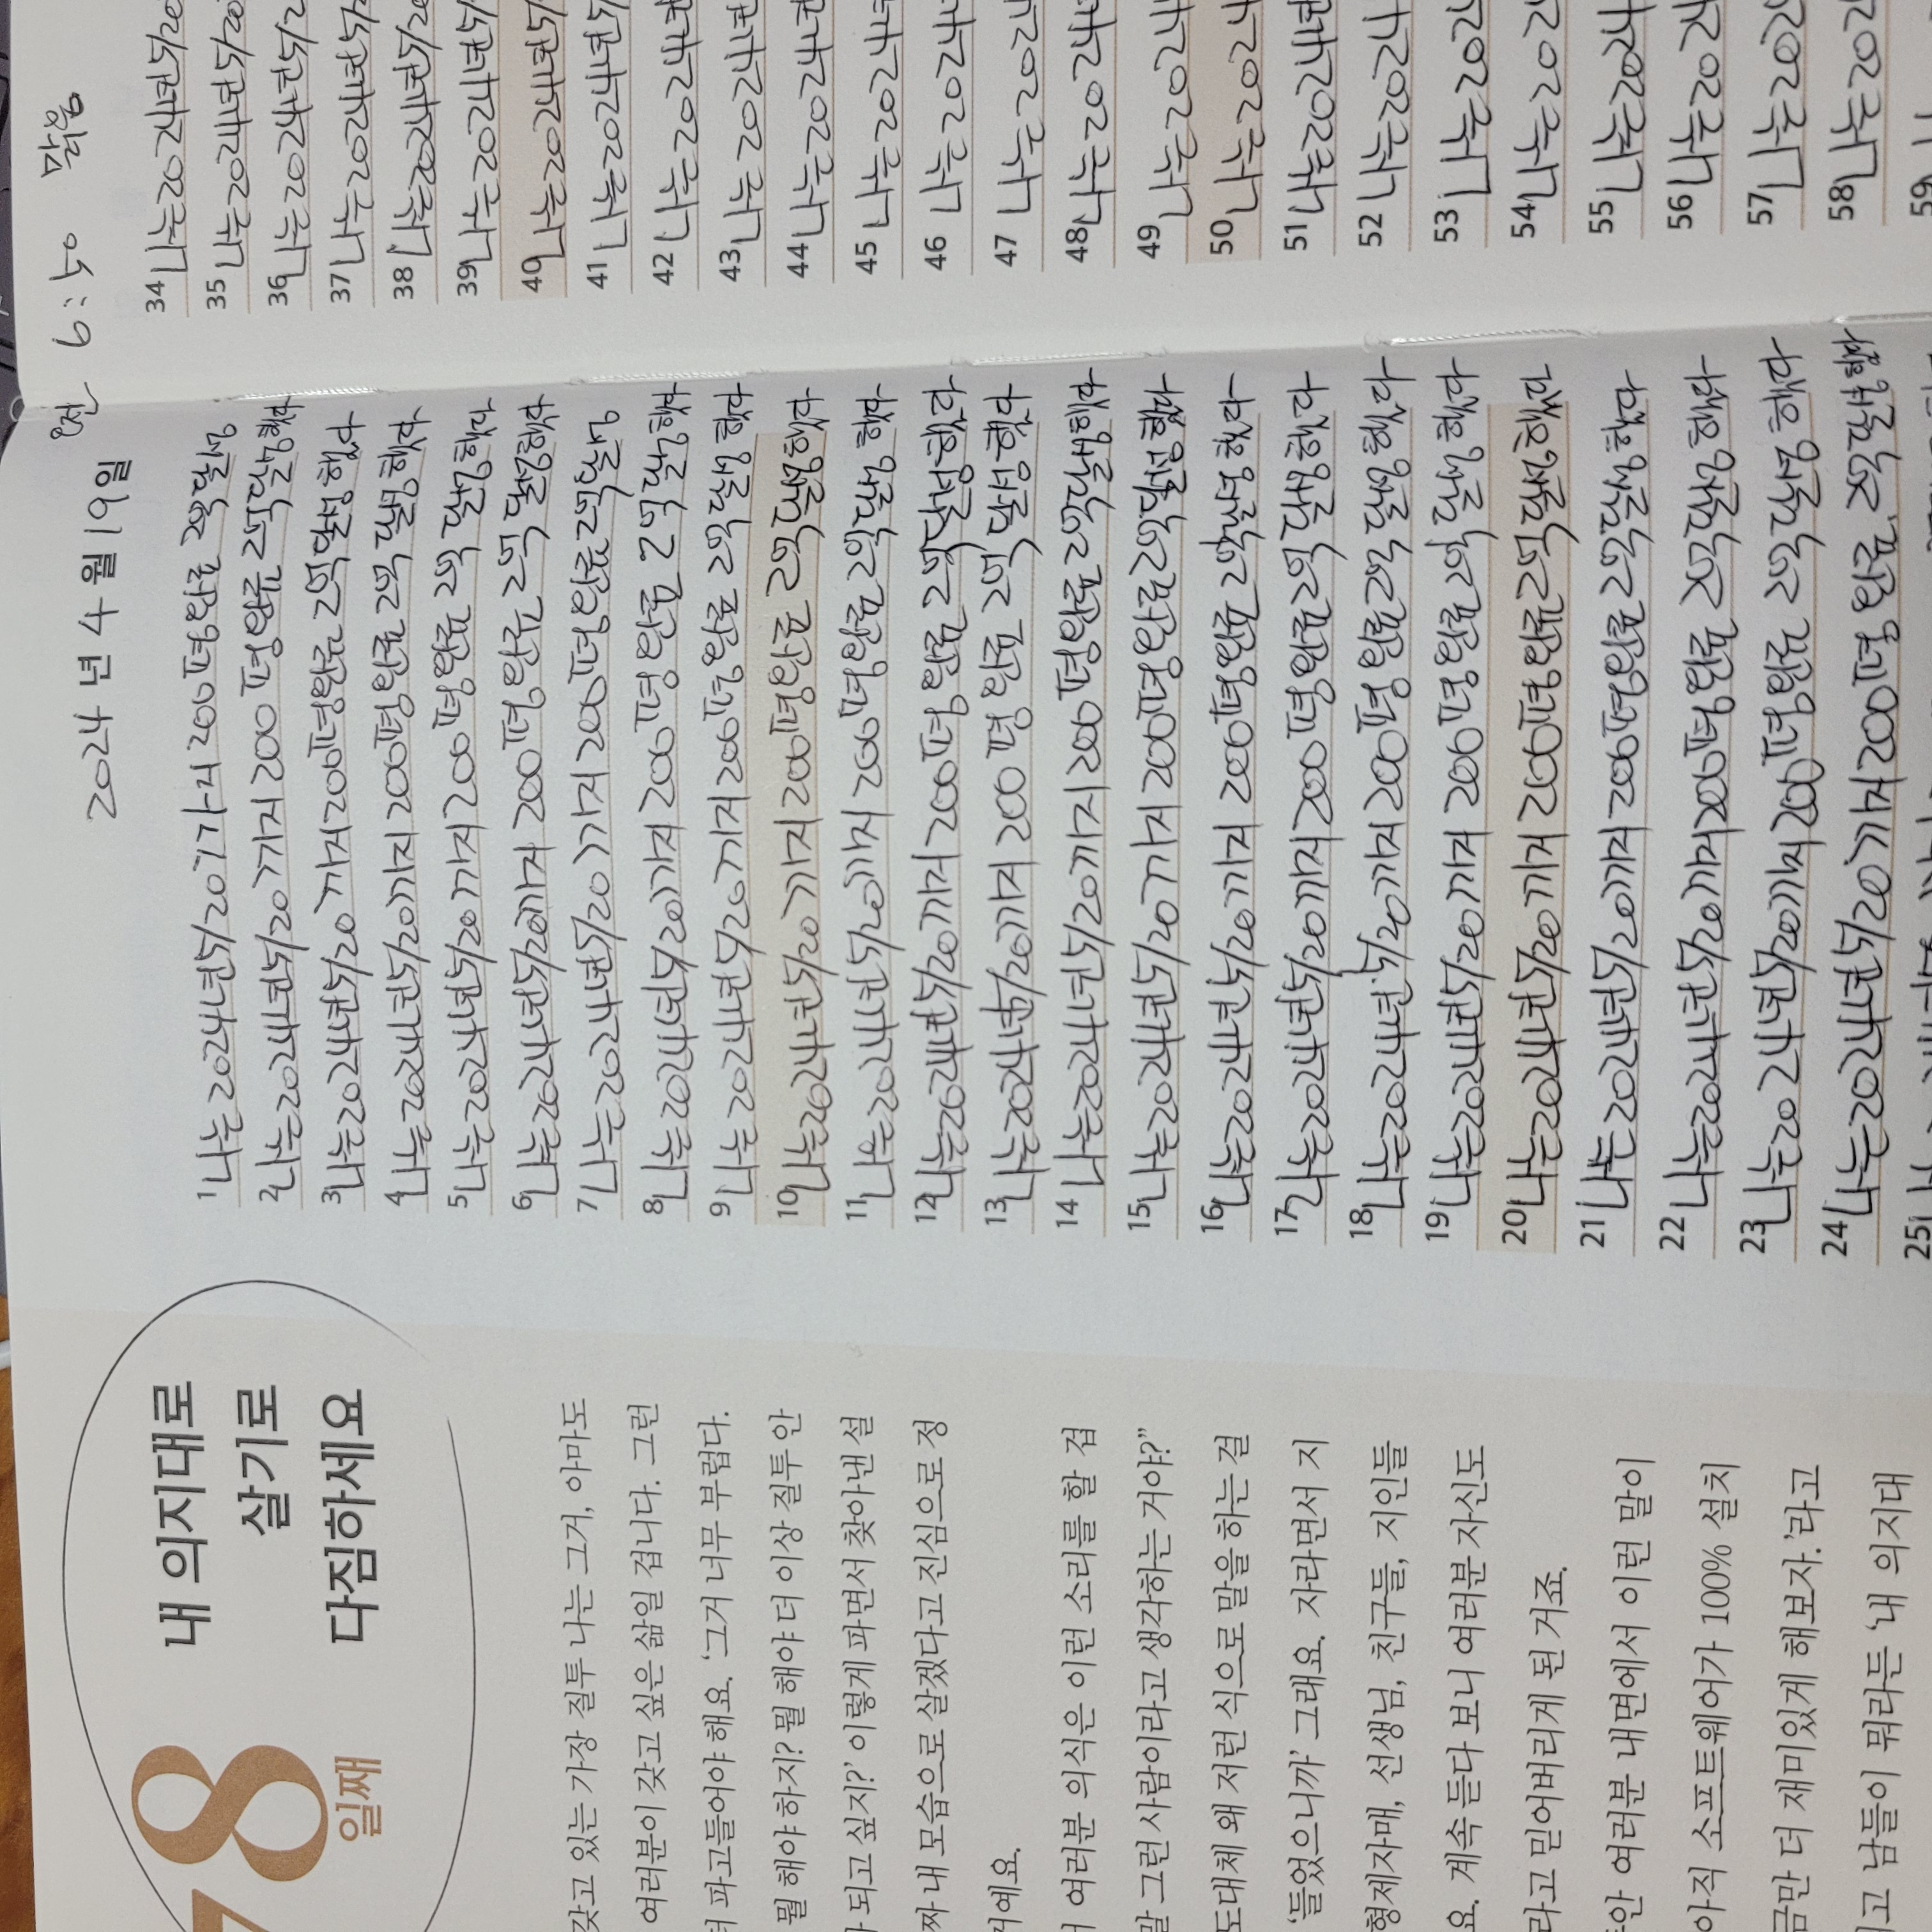 78
일째
내 의지대로
살기로
다짐하세요
갖고 있는 가장 질투 나는 그거, 아마도
여러분이 갖고 싶은 삶일 겁니다. 그런
파고들어야 해요. ‘그거 너무 부럽다.
뭘 해야 하지? 뭘 해야 더 이상 질투 안
되고 싶지?’ 이렇게 파면서 찾아낸 설
짜 내 모습으로 살겠다고 진심으로 정
거예요.
여러분 의식은 이런 소리를 할 겁
말 그런 사람이라고 생각하는 거야?”
도대체 왜 저런 식으로 말을 하는 걸
‘들었으니까’ 그래요. 자라면서 지
형제자매, 선생님, 친구들, 지인들
요. 계속 듣다 보니 여러분 자신도
라고 믿어버리게 된 거죠.
안 여러분 내면에서 이런 말이
아직 소프트웨어가 100% 설치
금만 더 재미있게 해보자.’라고
고 남들이 뭐라든 ‘내 의지대
2024년 4월 19일
1 나는 2024년 5/20까지 200평 완료 2억 달성
2 나는 2024년 5/20까지 200평 완료 2억 달성했다
3 나는 2024년 5/20까지 200평 완료 2억 달성했다
4 나는 2024년 5/20까지 200평 완료 2억 달성했다
5 나는 2024년 5/20까지 200평 완료 2억 달성했다
6 나는 2024년 5/20까지 200평 완료 2억 달성했다
7 나는 2024년 5/20까지 200평 완료 2억 달성
8 나는 2024년 5/20까지 200평 완료 2억 달성했다
9 나는 2024년 5/20까지 200평 완료 2억 달성했다
10 나는 2024년 5/20까지 200평 완료 2억 달성했다
11 나는 2024년 5/20까지 200평 완료 2억 달성했다
12 나는 2024년 5/20까지 200평 완료 2억 달성했다
13 나는 2024년 5/20까지 200평 완료 2억 달성했다
14 나는 2024년 5/20까지 200평 완료 2억 달성했다
15 나는 2024년 5/20까지 200평 완료 2억 달성했다
16 나는 2024년 5/20까지 200평 완료 2억 달성했다
17 나는 2024년 5/20까지 200평 완료 2억 달성했다
18 나는 2024년 5/20까지 200평 완료 2억 달성했다
19 나는 2024년 5/20까지 200평 완료 2억 달성했다
20 나는 2024년 5/20까지 200평 완료 2억 달성했다
21 나는 2024년 5/20까지 200평 완료 2억 달성했다
22 나는 2024년 5/20까지 200평 완료 2억 달성했다
23 나는 2024년 5/20까지 200평 완료 2억 달성했다
24 나는 2024년 5/20까지 200평 완료 2억 달성했다
25
오전 6:05
34 나는 2024년 5/20
35 나는 2024년 5/20
36 나는 2024년 5/
37 나는 2024년 5/
38 나는 2024년 5/2
39 나는 2024년 5/
40 나는 2024년 5
41 나는 2024년 5
42 나는 2024년
43 나는 2024년
44 나는 2024년
45 나는 2024
46 나는 2024
47 나는 202
48 나는 2024
49 나는 202
50 나는 202
51 나는 2024년
52 나는 202
53 나는 202
54 나는 202
55 나는 202
56 나는 202
57 나는 202
58 나는 202
59